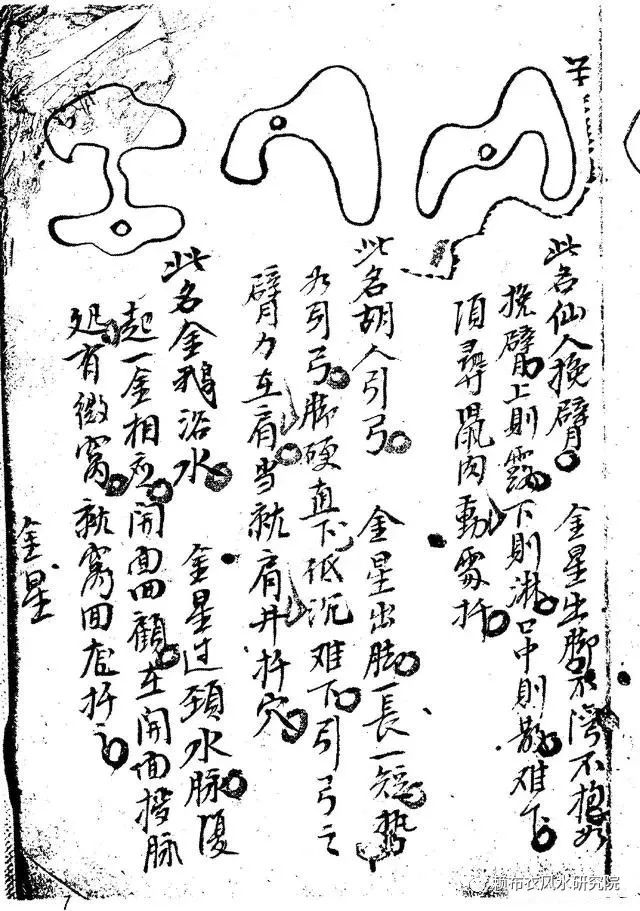 此名仙人挽臂 金星出脚不湾不抱如
挽臂上則露下則淋口中則散难下
項尋鼠肉動處扦
此名胡人引弓 金星出脚一長一短勢
如引弓脚硬直下低沉难下引弓之
臂力在肩当就肩井扦穴
此名金鵝浴水 金星过頚水脉復
起一金相应開面回顧在開面接脉
処有微窩就窩回扦
金星
7
赖布衣风水研究院